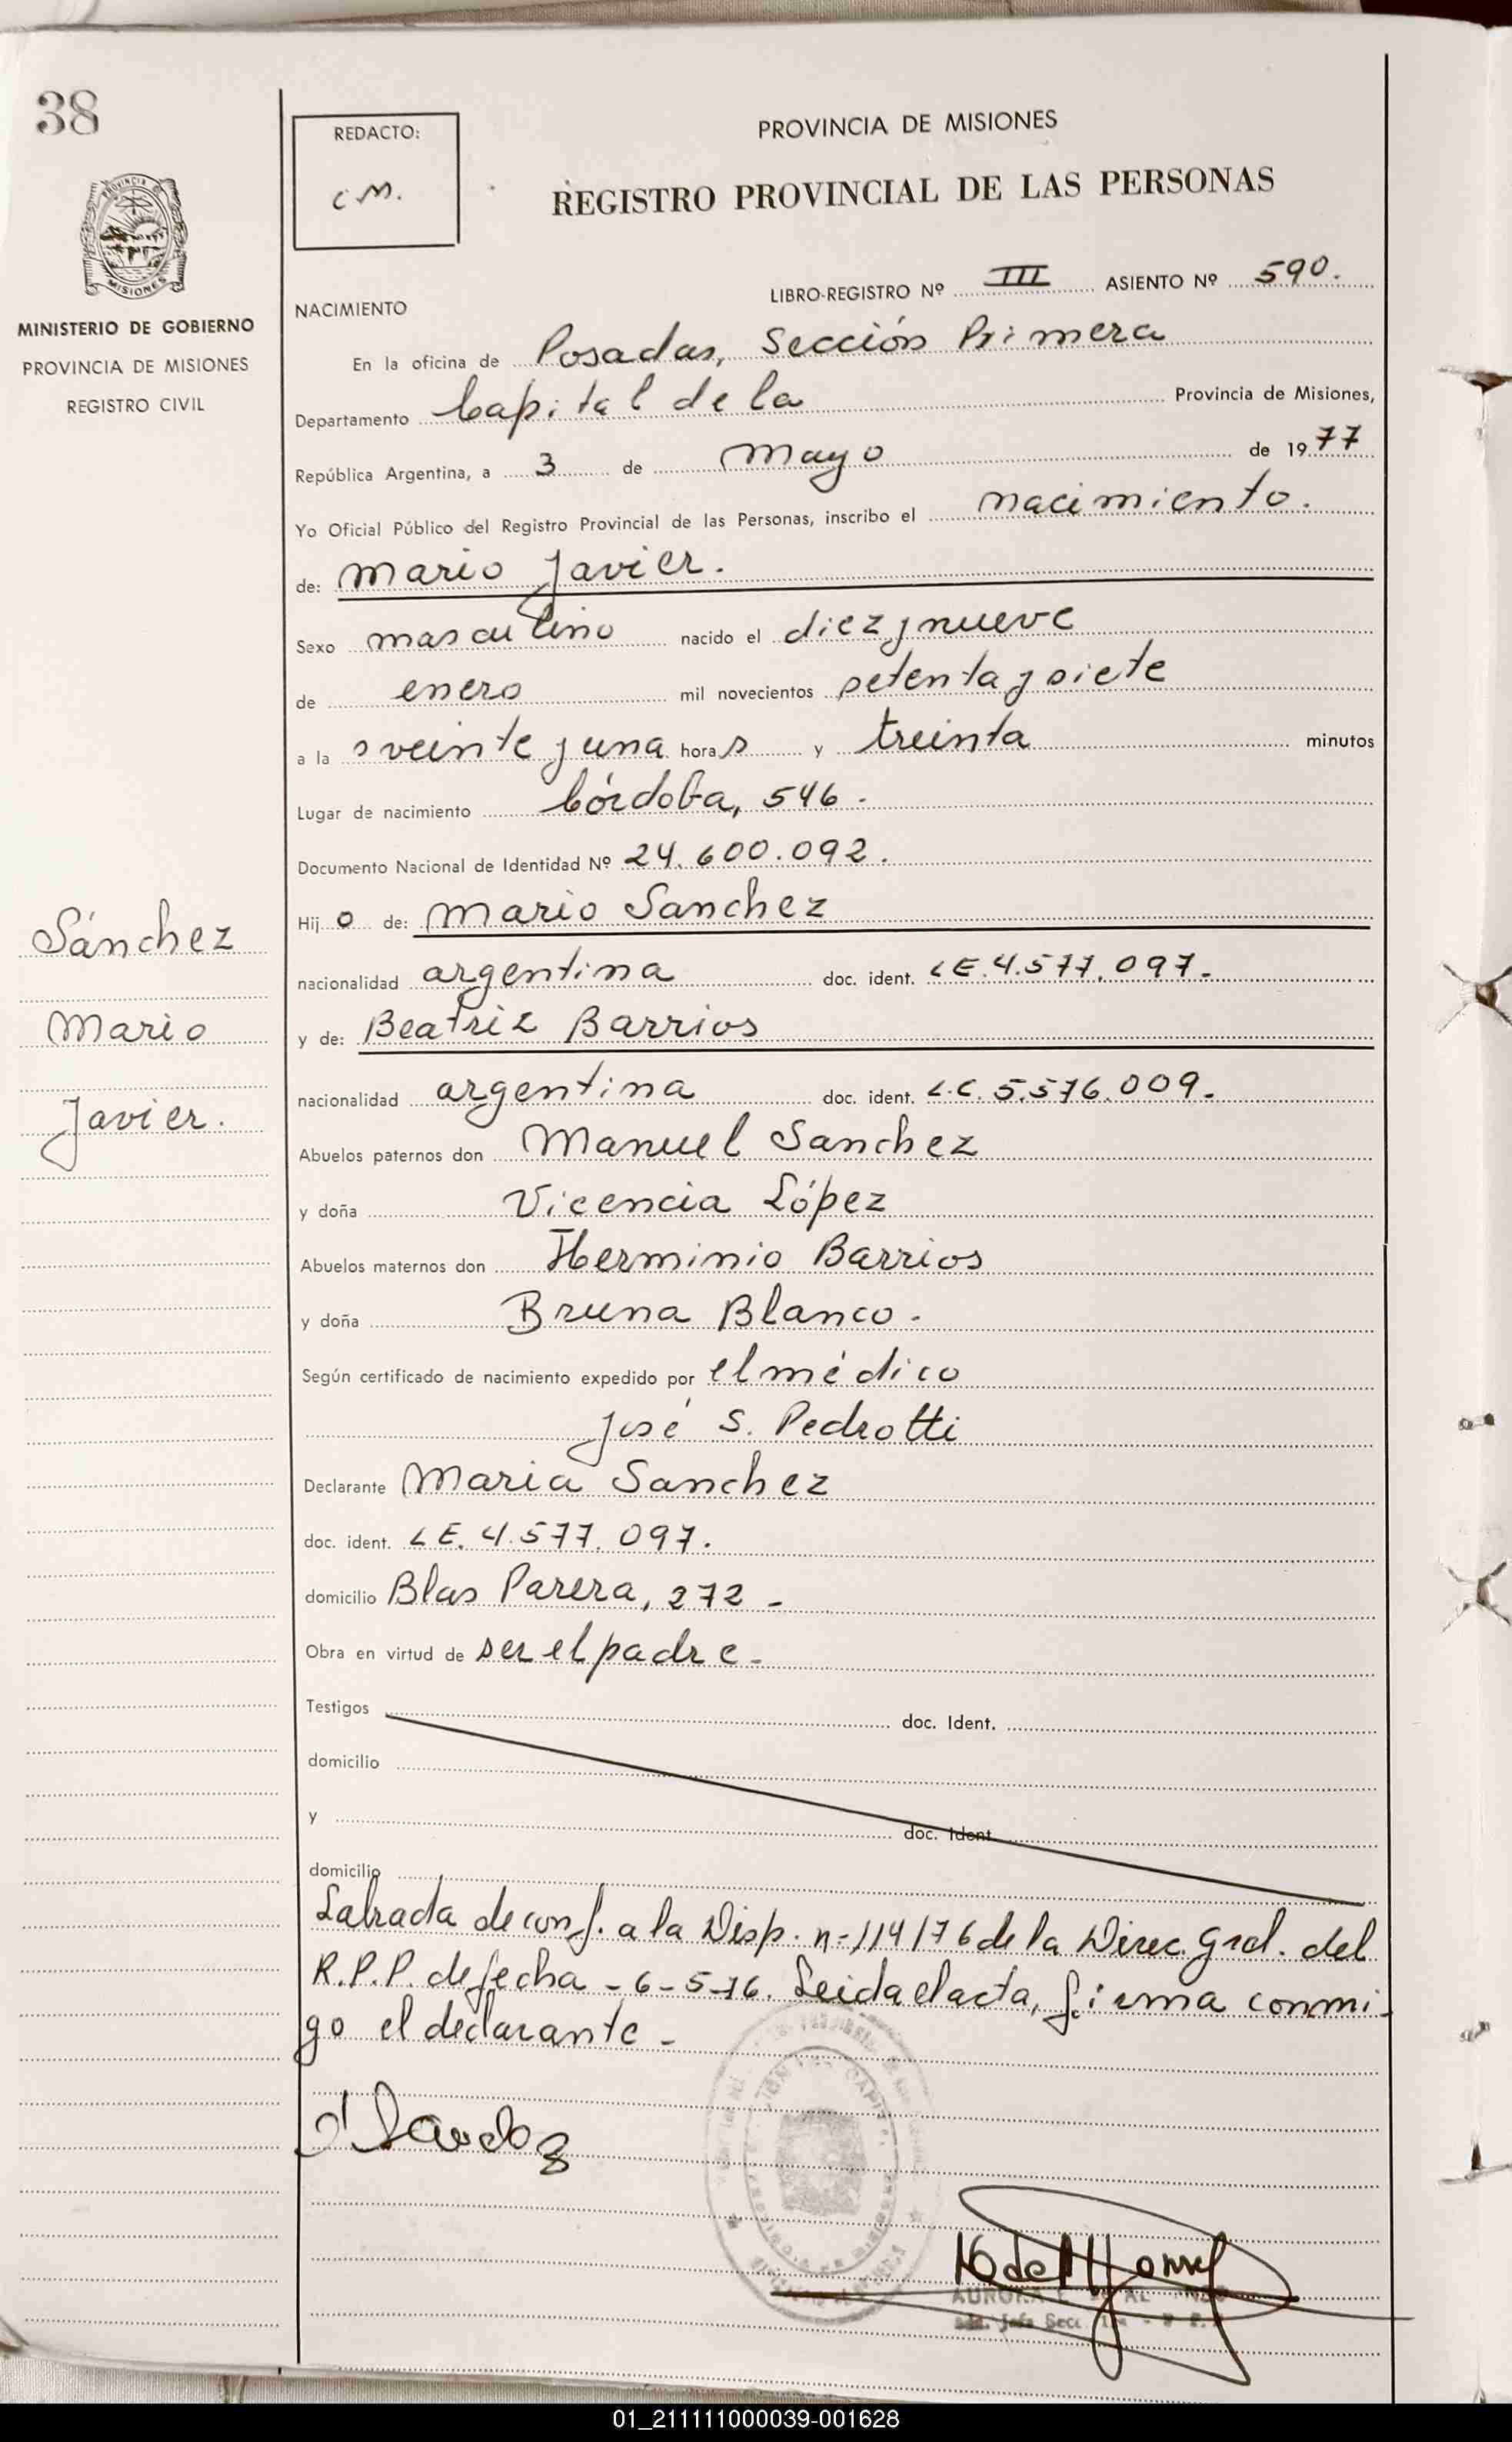 38
REDACTO:
C M.
PROVINCIA DE MISIONES
REGISTRO PROVINCIAL DE LAS PERSONAS
MISIONES
MINISTERIO DE GOBIERNO
PROVINCIA DE MISIONES
REGISTRO CIVIL
LIBRO-REGISTRO Nº III ASIENTO Nº 590.
NACIMIENTO
En la oficina de Posadas, Sección Primera
Departamento Capital de la Provincia de Misiones,
República Argentina, a 3 de mayo de 1977
Yo Oficial Público del Registro Provincial de las Personas, inscribo el nacimiento.
de: Mario Javier.
Sexo masculino nacido el diez y nueve
de enero mil novecientos setenta y siete
a la s veinte y una hora s y treinta minutos
Lugar de nacimiento Córdoba, 546.
Documento Nacional de Identidad Nº 24.600.092.
Hij o de: Mario Sanchez
nacionalidad argentina doc. ident. LE. 4.577.097.
y de: Beatriz Barrios
nacionalidad argentina doc. ident. L.C. 5.576.009.
Abuelos paternos don Manuel Sanchez
y doña Vicencia López
Abuelos maternos don Herminio Barrios
y doña Bruna Blanco.
Según certificado de nacimiento expedido por el médico
José S. Pedrotti
Declarante Maria Sanchez
doc. ident. LE. 4.577.097.
domicilio Blas Parera, 272 -
Obra en virtud de ser el padre.
Testigos doc. Ident.
domicilio
y doc. Ident
domicilio
Labrada de conf. a la Disp. n=114/76 de la Direc. Gral. del
R.P.P. de fecha -6-5-76. Leida el acta, firma conmi-
go el declarante -
Sánchez
Mario
Javier.
01_211111000039-001628